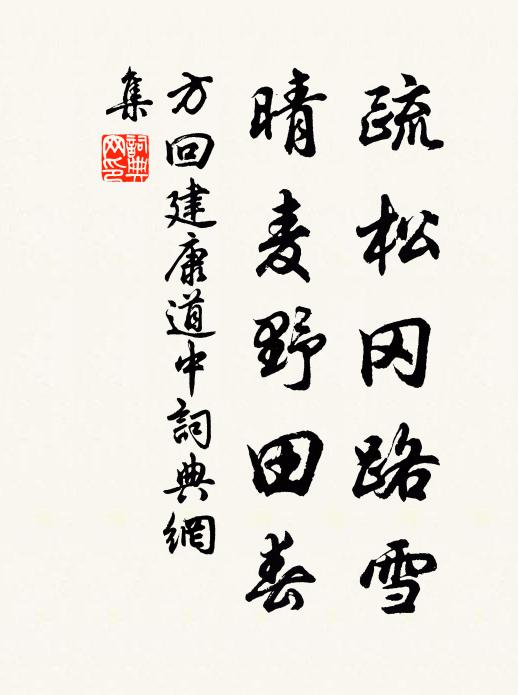 疏松冈路雪
晴麦野田春
方回建康道中詞典網
集
詞典
网印